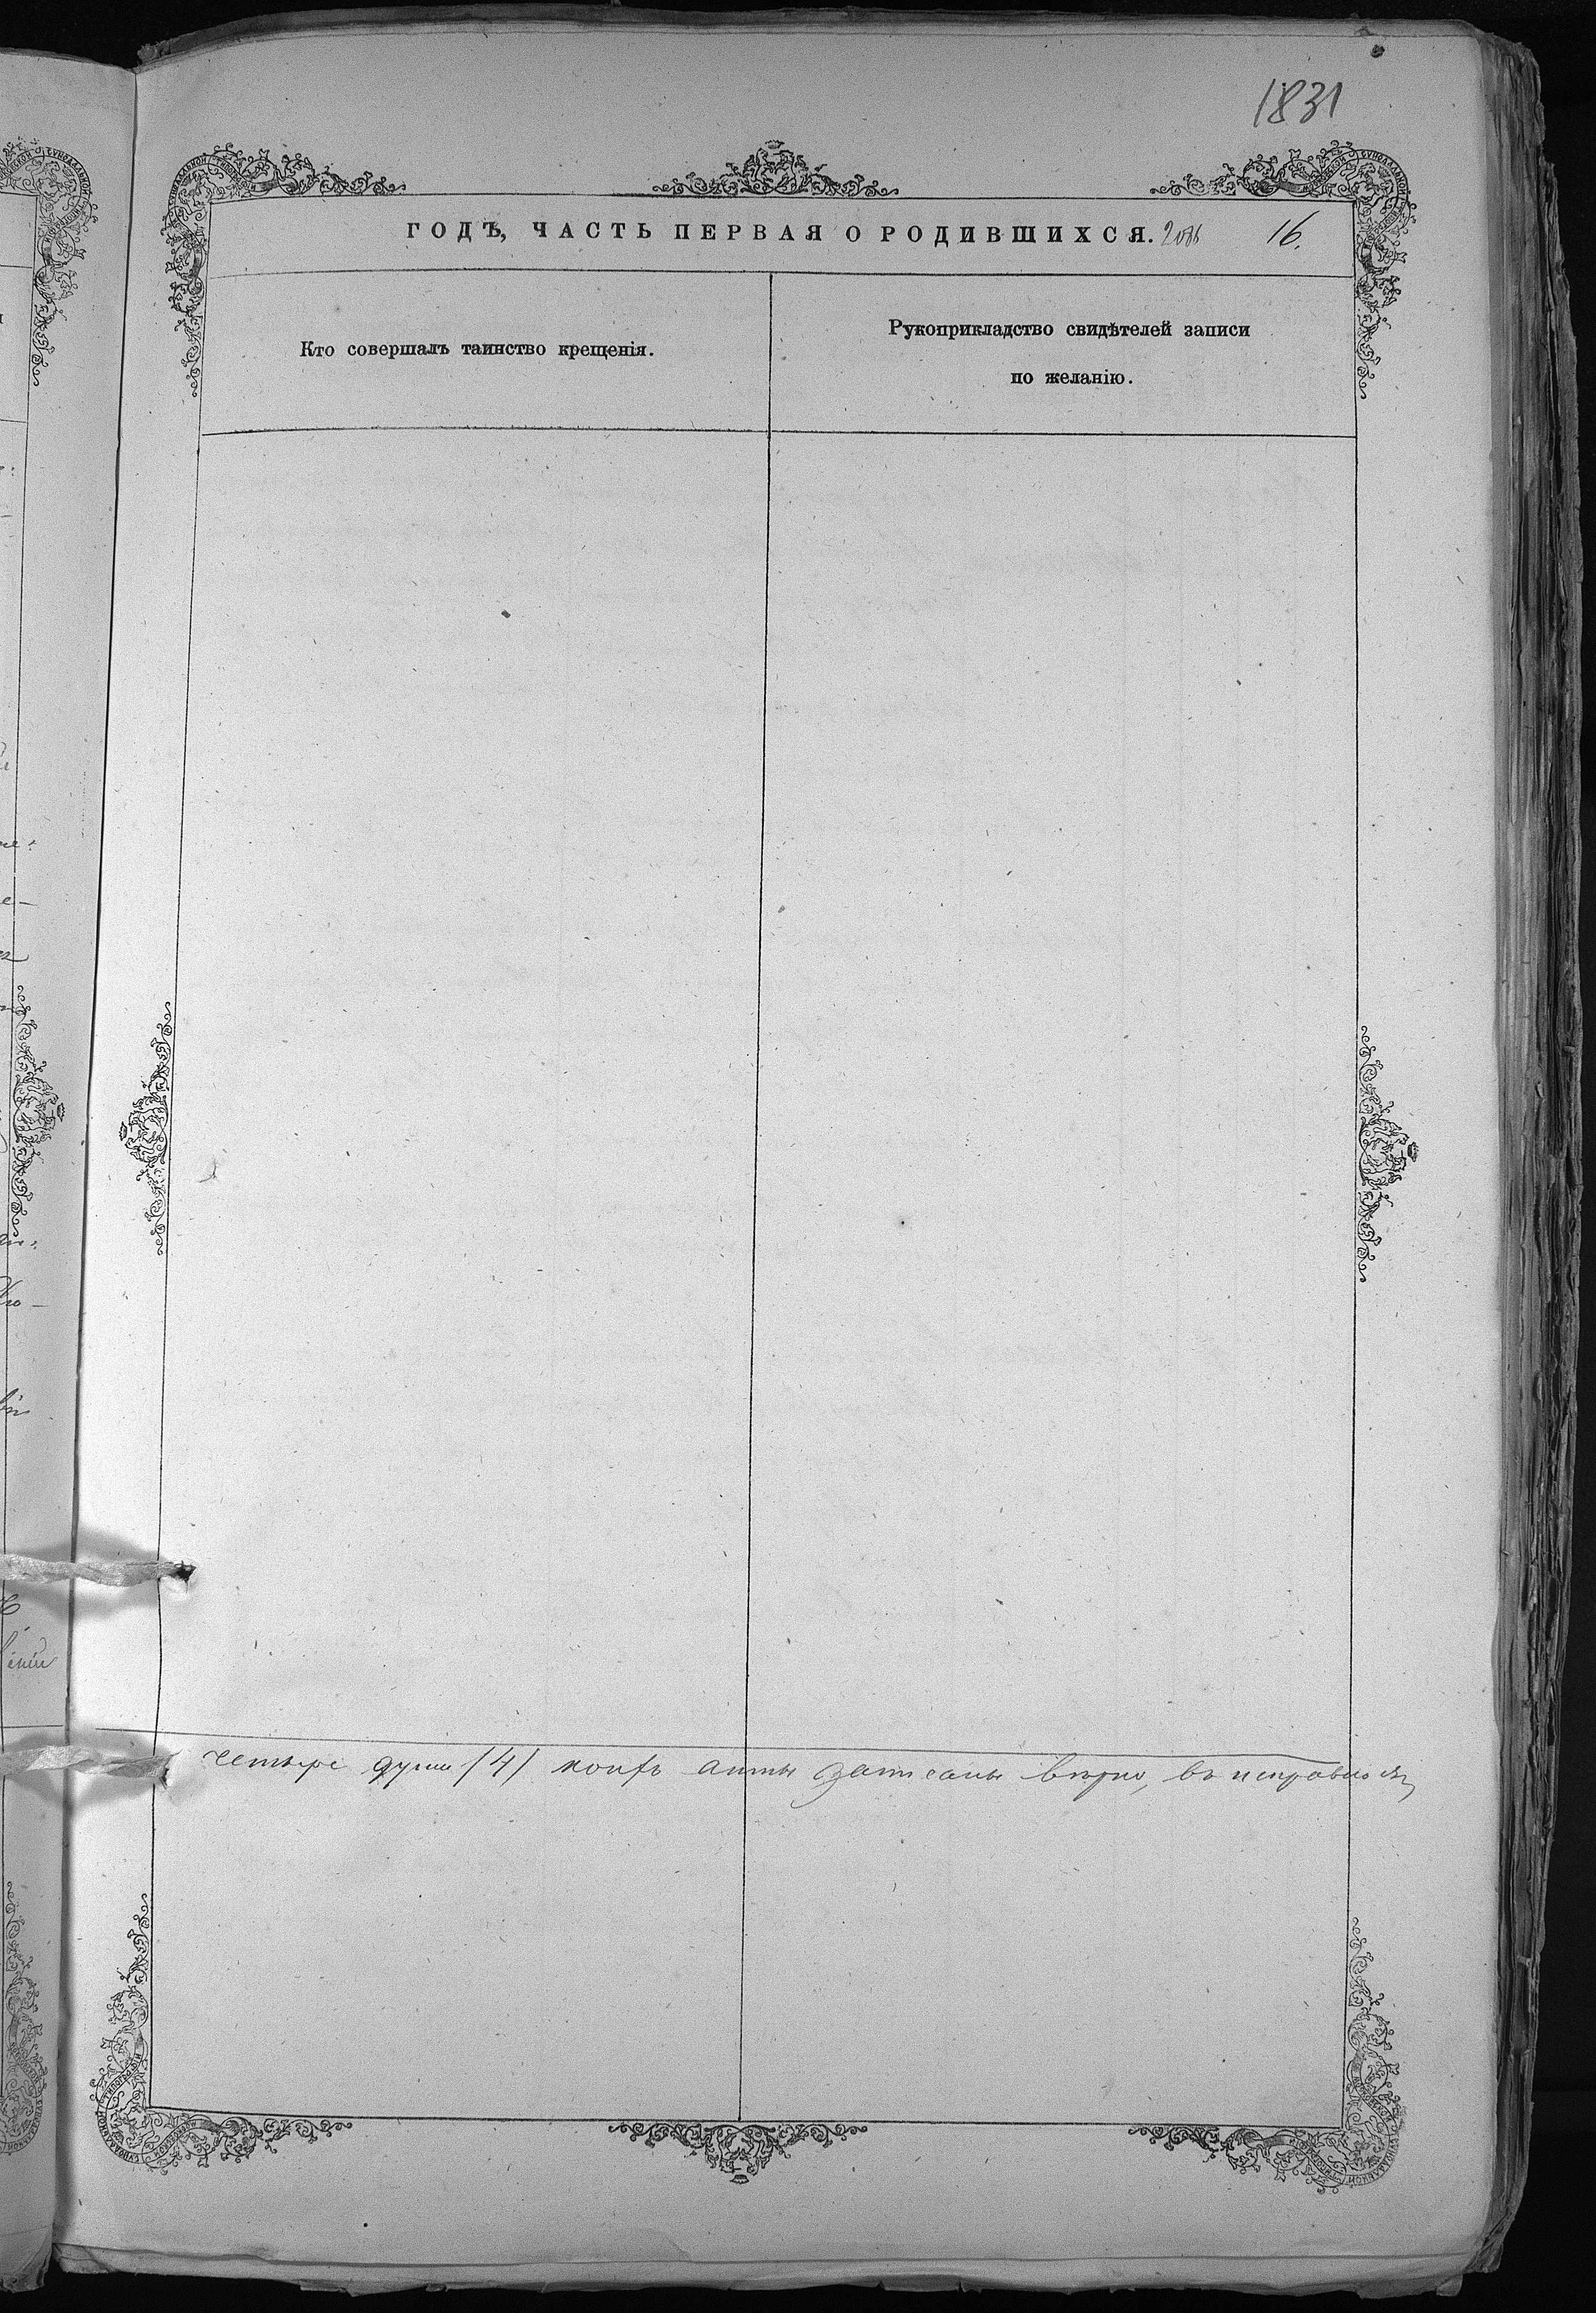 1831
ГОДЪ, ЧАСТЬ ПЕРВАЯ О РОДИВШИХСЯ. 16.
Кто совершалъ таинство крещенія.
Рукоприкладство свидѣтелей записи
по желанію.
четыре души (4) коихъ акты записаны вѣрно, въ исправнос